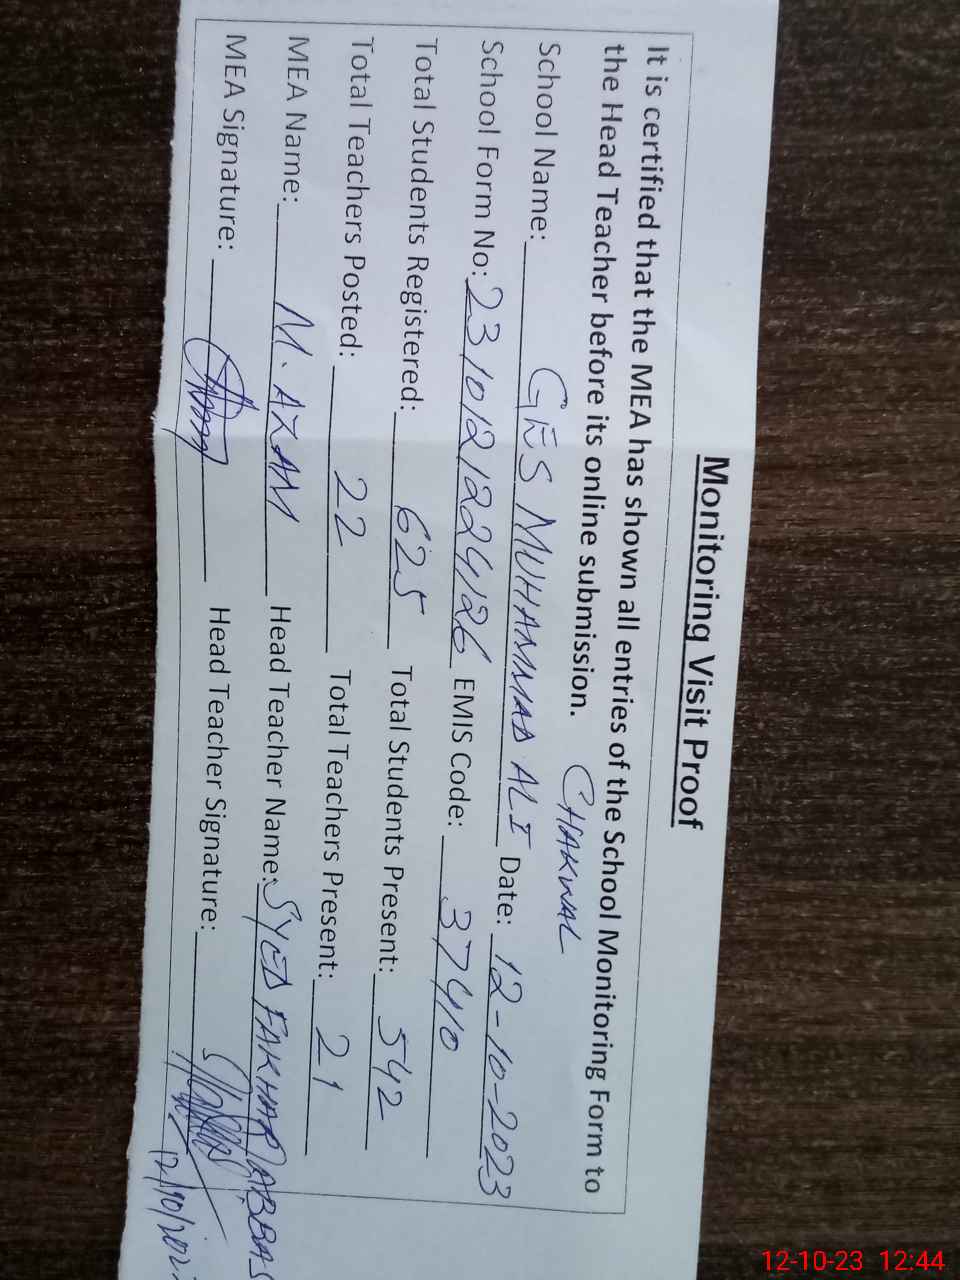 Monitoring Visit Proof
It is certified that the MEA has shown all entries of the School Monitoring Form to
the Head Teacher before its online submission.
CHAKWAL
School Name: GES MUHAMMAD ALI Date: 12-10-2023
School Form No: 2310121224126 EMIS Code: 37410
Total Students Registered: 625 Total Students Present: 542
Total Teachers Posted: 22 Total Teachers Present: 21
MEA Name: M. AZAM Head Teacher Name: SYED FAKHAR ABBAS
MEA Signature: Head Teacher Signature:
12-10-23 12:44